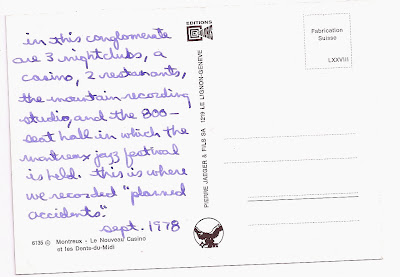 in this conglomerate
are 3 nightclubs, a
casino, 2 restaurants,
the mountain recording
studio, and the 800-
seat hall in which the
montreux jazz festival
is held. this is where
we recorded "planned
accidents".
sept. 1978
6135 © Montreux - Le Nouveau Casino
et les Dents-du-Midi
EDITIONS
PIERRE JAEGER & FILS SA 1219 LE LIGNON-GENEVE
Fabrication
Suisse
LXXVIII